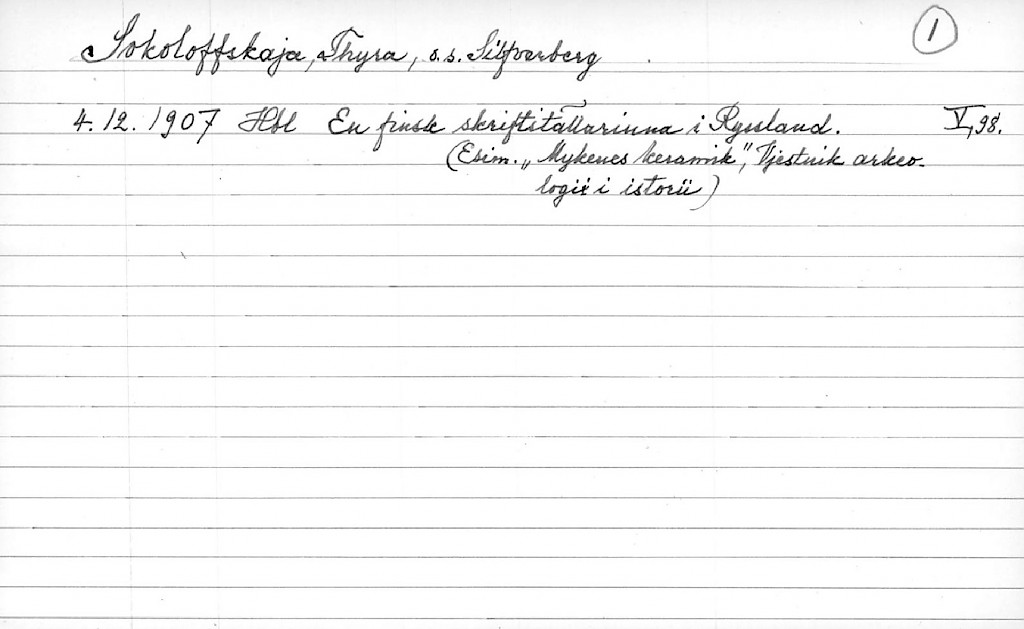 1
Sokoloffskaja, Thyra, o.s. Silfverberg
4.12.1907 Hbl En finsk skriftställarinna i Ryssland. V,98.
(Esim. „Mykenes keramik", Vjestnik arkeo-
logii i istorii)